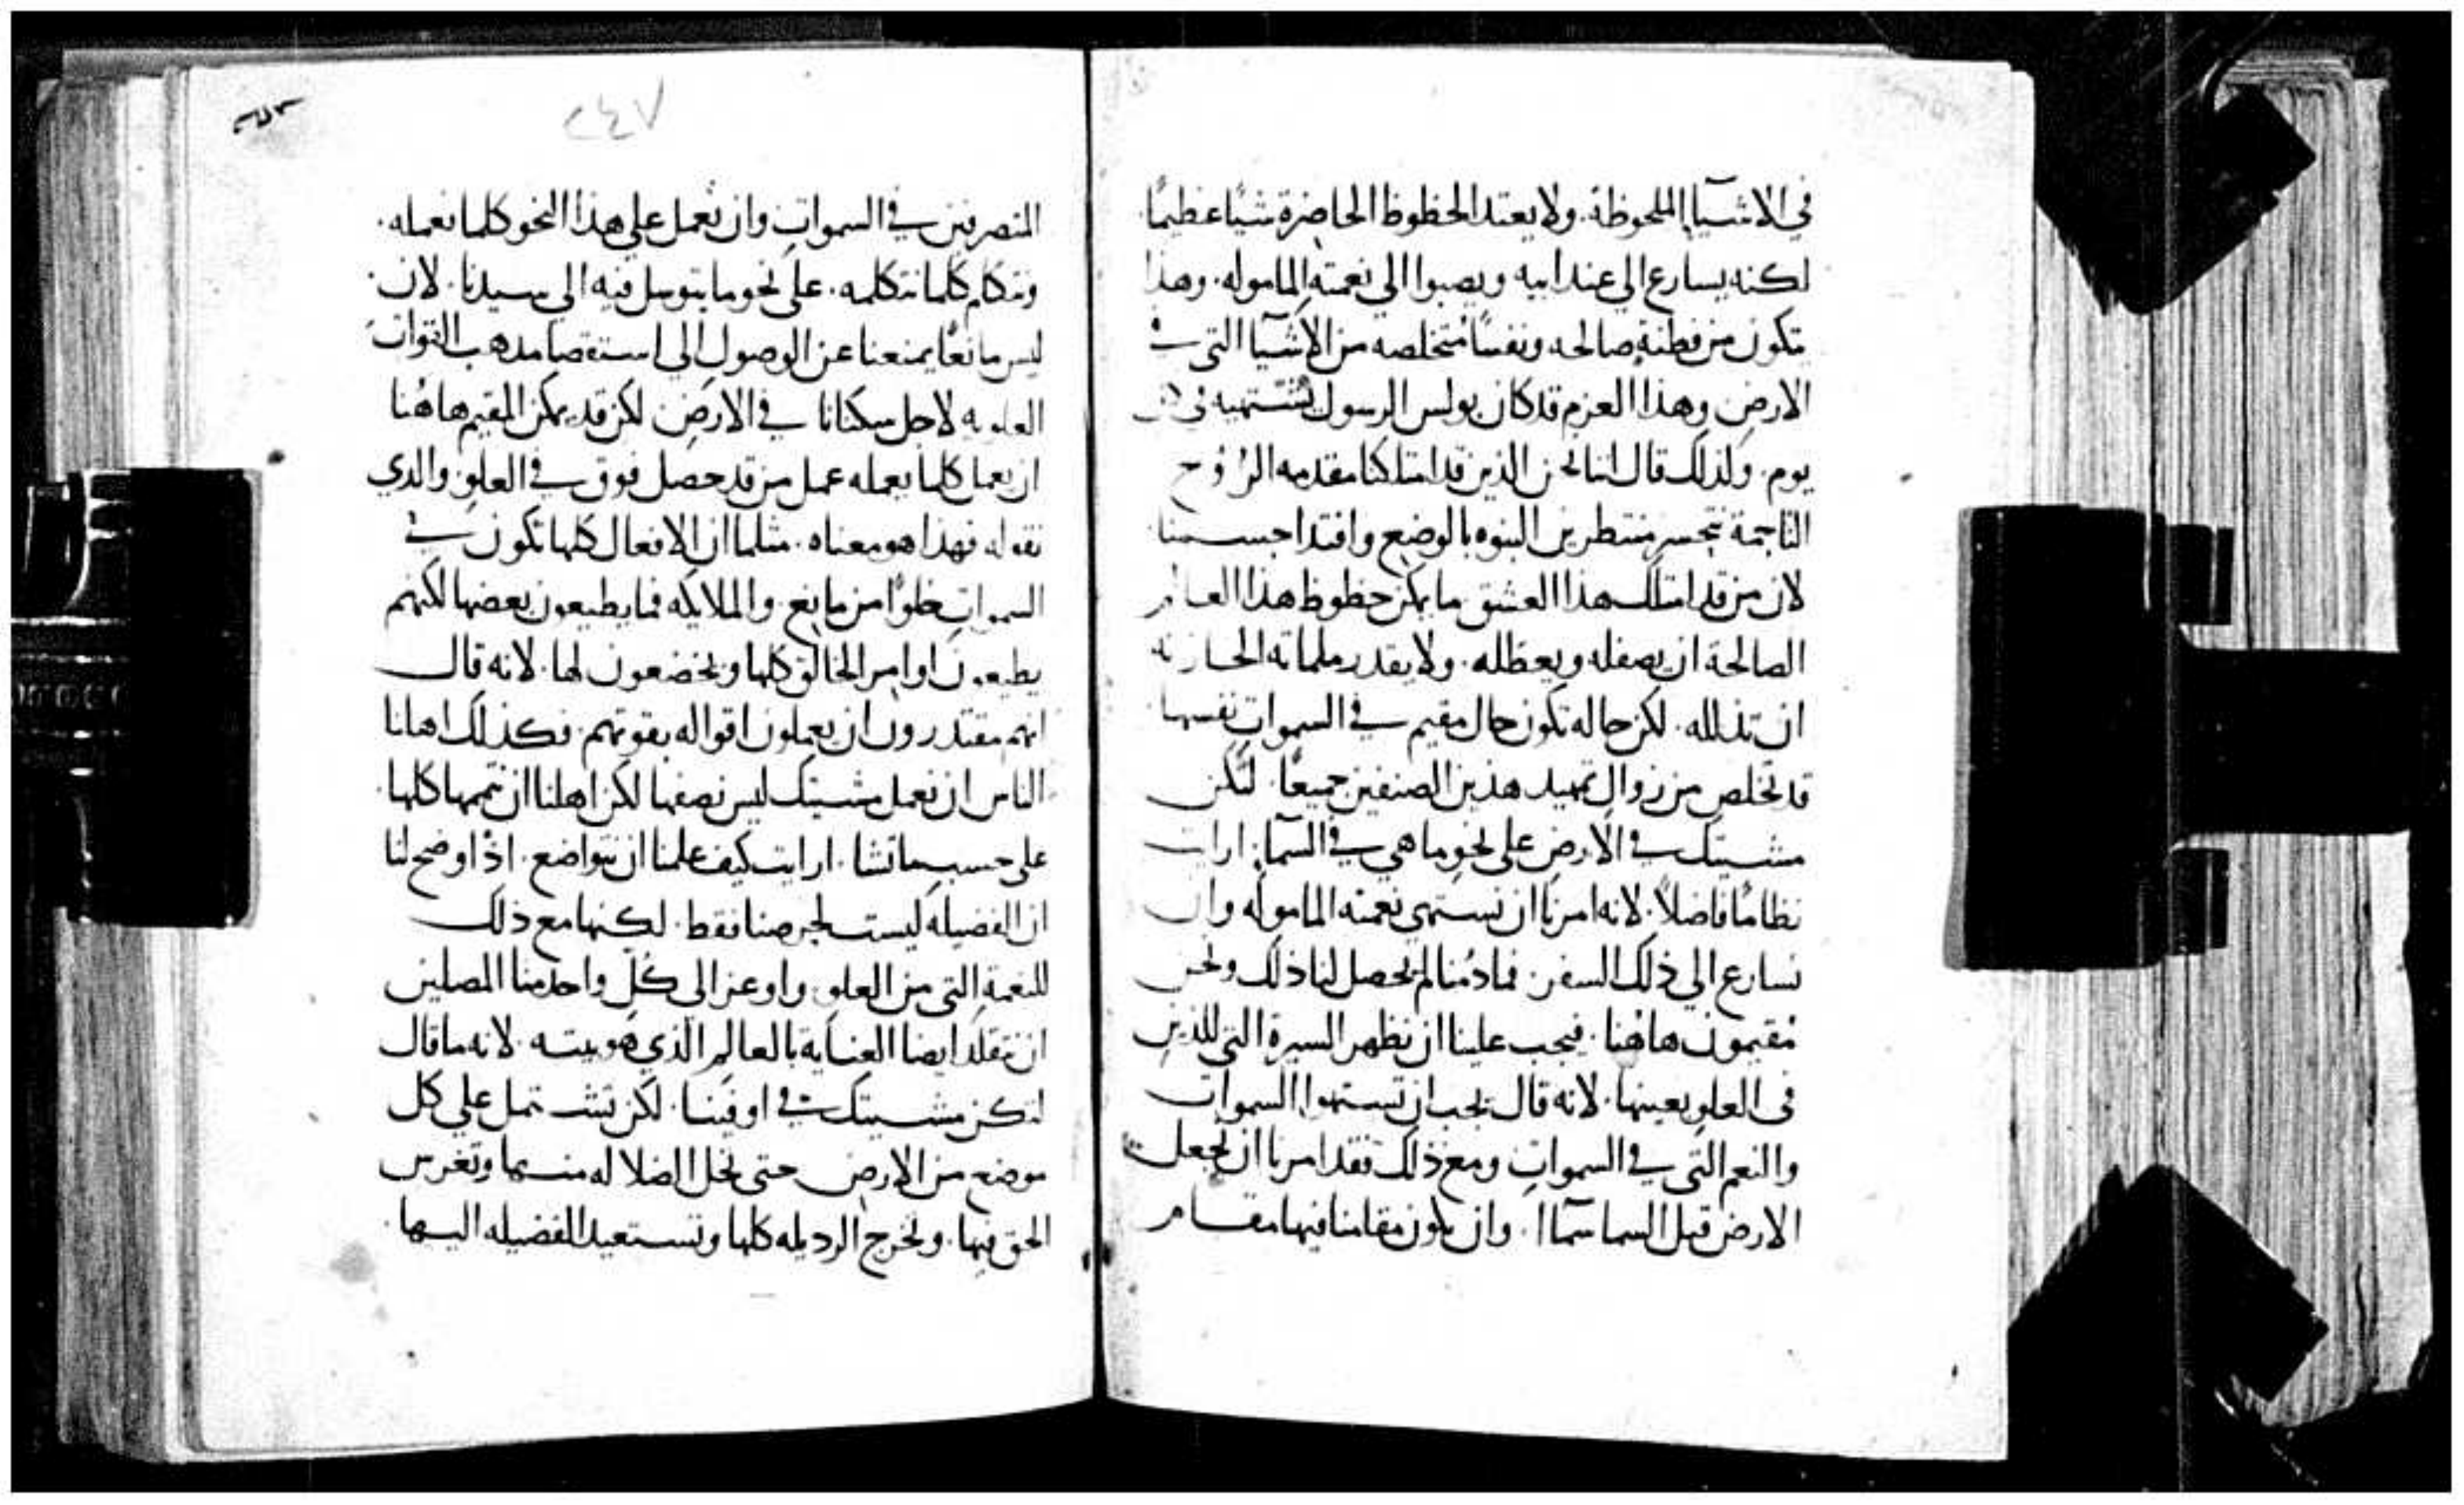 في الاشيآ الملحوظة. ولا يعتد الحظوظ الحاضرة شيًا عظيمًا
لكنه يسارع الي عند ابيه ويصبوا الي نعمته الماموله. وهذا
تكون من فطنةٍ صالحه ونفسًا متخلصه من الاشيآ التي في
الارض وهذا العزم قد كان بولس الرسول يشتهيه في كل
يوم. ولذلك قال اننا نحن الذين قد امتلكنا مقدمه الرُوح
الناجمة نتحسر منتطرين البنوه بالوضع وافتدا جسمنا
لان من قد امتلك هذا العشق ما يمكن حظوظ هذا العالم
الصالحة ان يصفله ويعظله. ولا يقدر ملماته الحازنه
ان تذلله. لكن حاله تكون حال مقيم في السموات نفسها
قد تخلص من زوال تمهيد هذين الصنفين جميعًا. لتكن
مشيتك في الارض على نحو ما هي في السمآ. ارايت
نظامًا فاضلاً. لانه امرنا ان نستهي نعمته الماموله وان
نسارع الي ذلك السفر. فما دُمنا لم يحصل لنا ذلك ونحن
مُقيمون هاهُنا. فيجب علينا ان نظهر السيرة التي للذين
في العلو بعينها. لانه قال يجب ان تستهوا السموات
والنعم التي في السموات ومع ذلك فقد امرنا ان نجعل
الارض قبل السما سمآا. وان يكون مقامنا فيها مقام
٢٤٧
المتصرفين في السموات وان نعمل علي هذا النحو كلما نعمله.
ونتكلم كلما نتكلمه. على نحو ما يتوسل فيه الي سيدنا. لان
ليس مانعًا يمنعنا عن الوصول الي استقصا مذهب القوات
العلويه لاجل سكنانا في الارض لكن قد يمكن المقيم هاهُنا
ان يعمل كلما يعمله عمل من قد حصل فوق في العلو. والدي
نقوله فهدا هو معناه. مثلما ان الافعال كلها تكون في
السموات خلوًا من مانع. والملايكه فما يطيعون بعضها لكنهم
يطيعون اوامر الخالق كلها ويخضعون لها. لانه قال
انهم مقتدرون ان يعملون اقواله بقوتهم. فكذلك اهلنا
الناس ان نعمل مشيتك ليس نصفها لكن اهلنا ان نتممها كلها.
على حسب ما تشا. ارايت كيف علمنا ان نتواضع. اذ اوضح لنا
ان الفضيله ليست لحرصنا فقط. لكنها مع ذلك
للنعمة التي من العلو. واوعز الى كل واحد منا المصلين
ان يتقلد ايضا العناية بالعالم الذي هو بيته. لانه ما قال
لتكن مشيتك في او فينا. لكن تشتمل علي كل
موضع من الارض حتى تحل الضلاله منها وتغرس
الحق فيها. ونخرج الرديله كلها ونستعيد الفضيله اليها